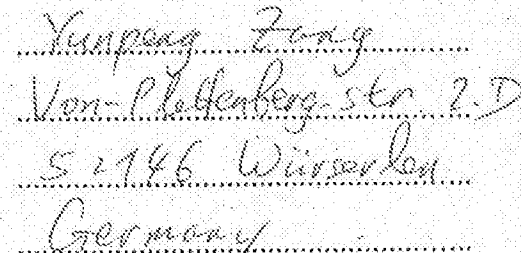 Yunpeng Zang
Von-Plettenberg-str. 2.D
52146 Würserlen
Germany